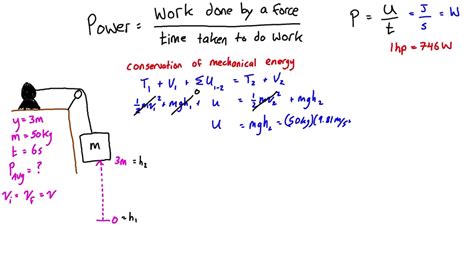 Power = work done by a force / time taken to do work
P = U/t = J/s = W
1hp = 746W
conservation of mechanical energy
T₁ + V₁ + ΣU₁₋₂ = T₂ + V₂
½mv₁² + mgh₁ + U = ½mv₂² + mgh₂
0
U = mgh₂ = (50kg)(9.81m/s
y = 3m
m = 50kg
t = 6s
P avg = ?
v₁ = v_f = v
m
3m = h₂
0 = h₁